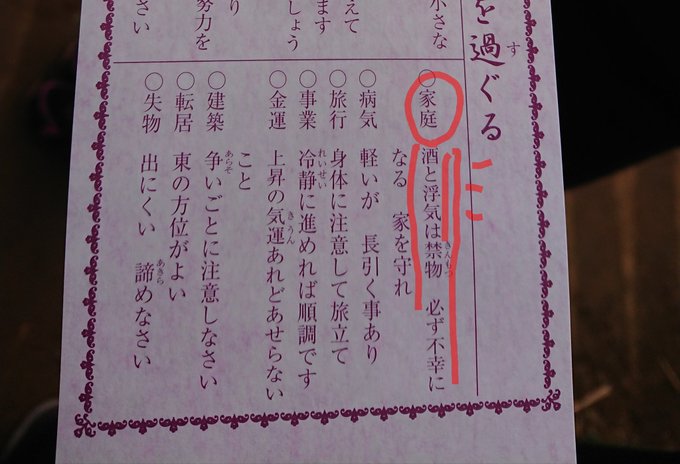 す
を過ぐる
小さな
えて
ます
しょう
り
努力を
さい
きんもつ
○家庭 酒と浮気は禁物 必ず不幸に
なる 家を守れ
○病気 軽いが 長引く事あり
○旅行 身体に注意して旅立て
れいせい
○事業 冷静に進めれば順調です
きうん
○金運 上昇の気運あれどあせらない
こと
あらそ
○建築 争いごとに注意しなさい
○転居 東の方位がよい
あきら
○失物 出にくい 諦めなさい